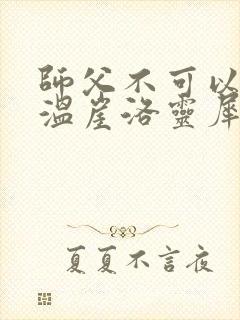 師父不可以
溫崖洛靈犀
夏夏不言夜